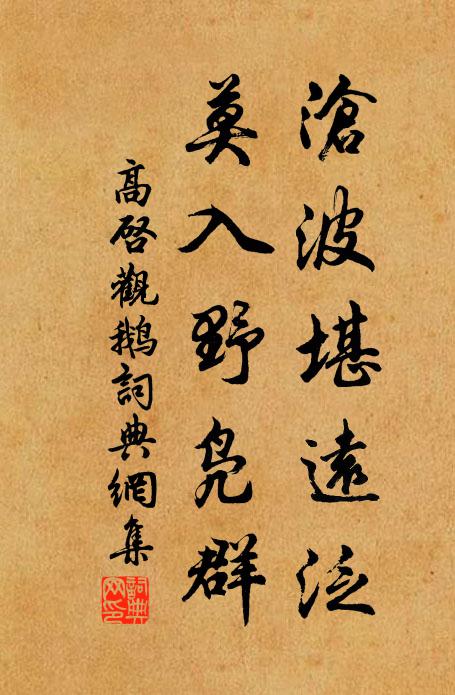 滄波堪遠泛
莫入野鳧群
高啓觀鵝詞典網集
詞典網印